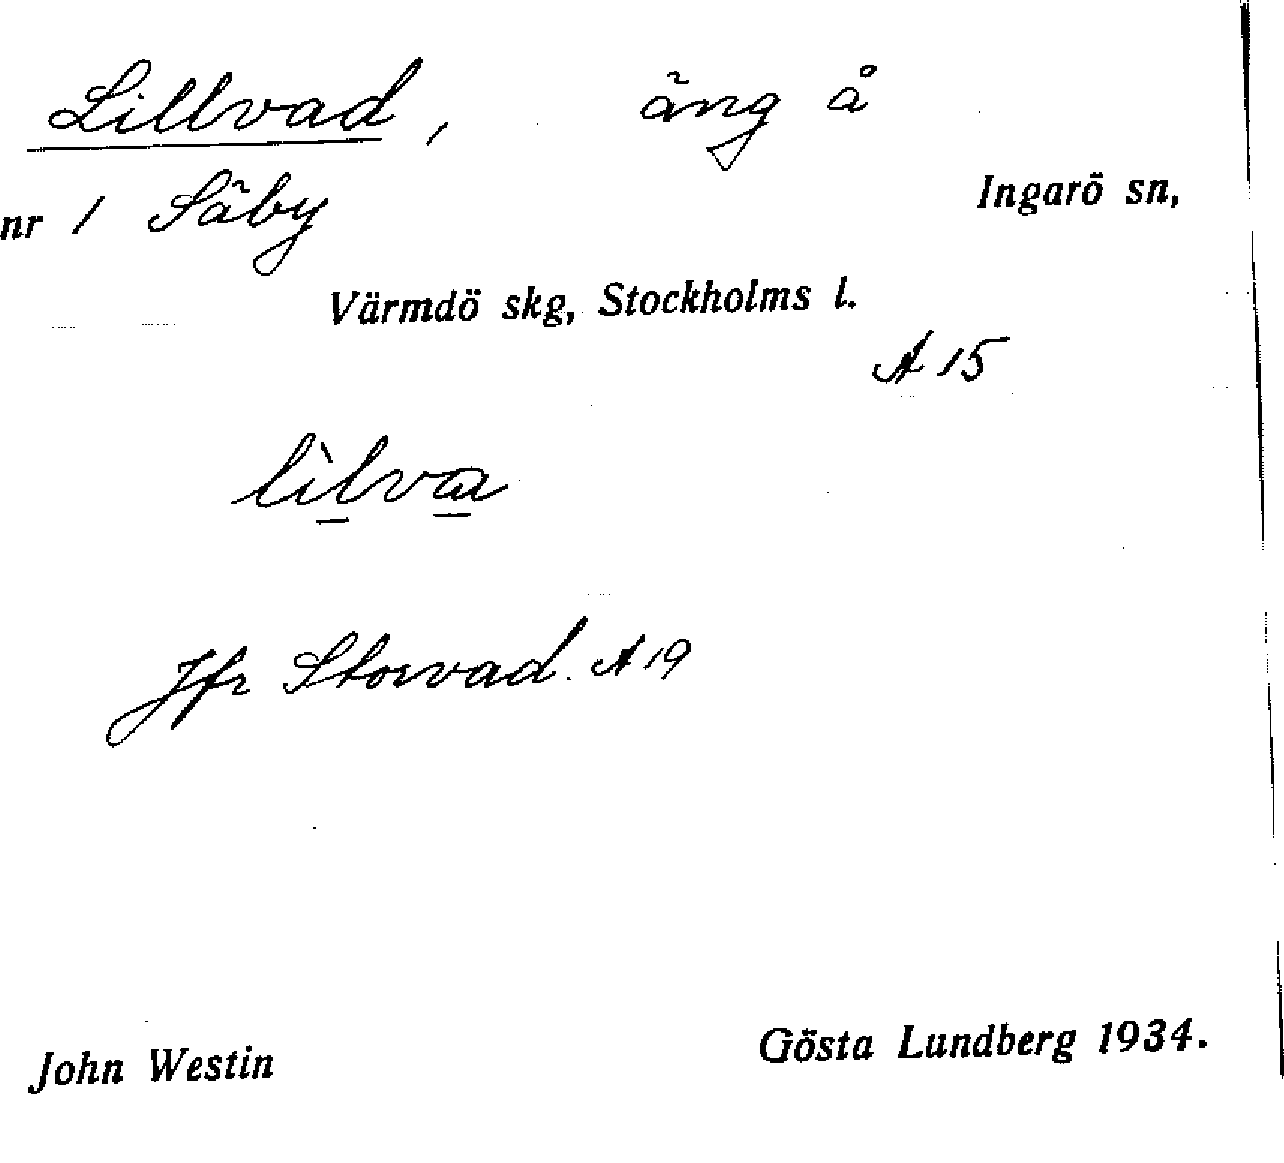 Lillvad, äng å
Ingarö sn,
nr 1 Säby
Värmdö skg, Stockholms l.
A 15
lìlva
Jfr Storvad. A 19
John Westin
Gösta Lundberg 1934.